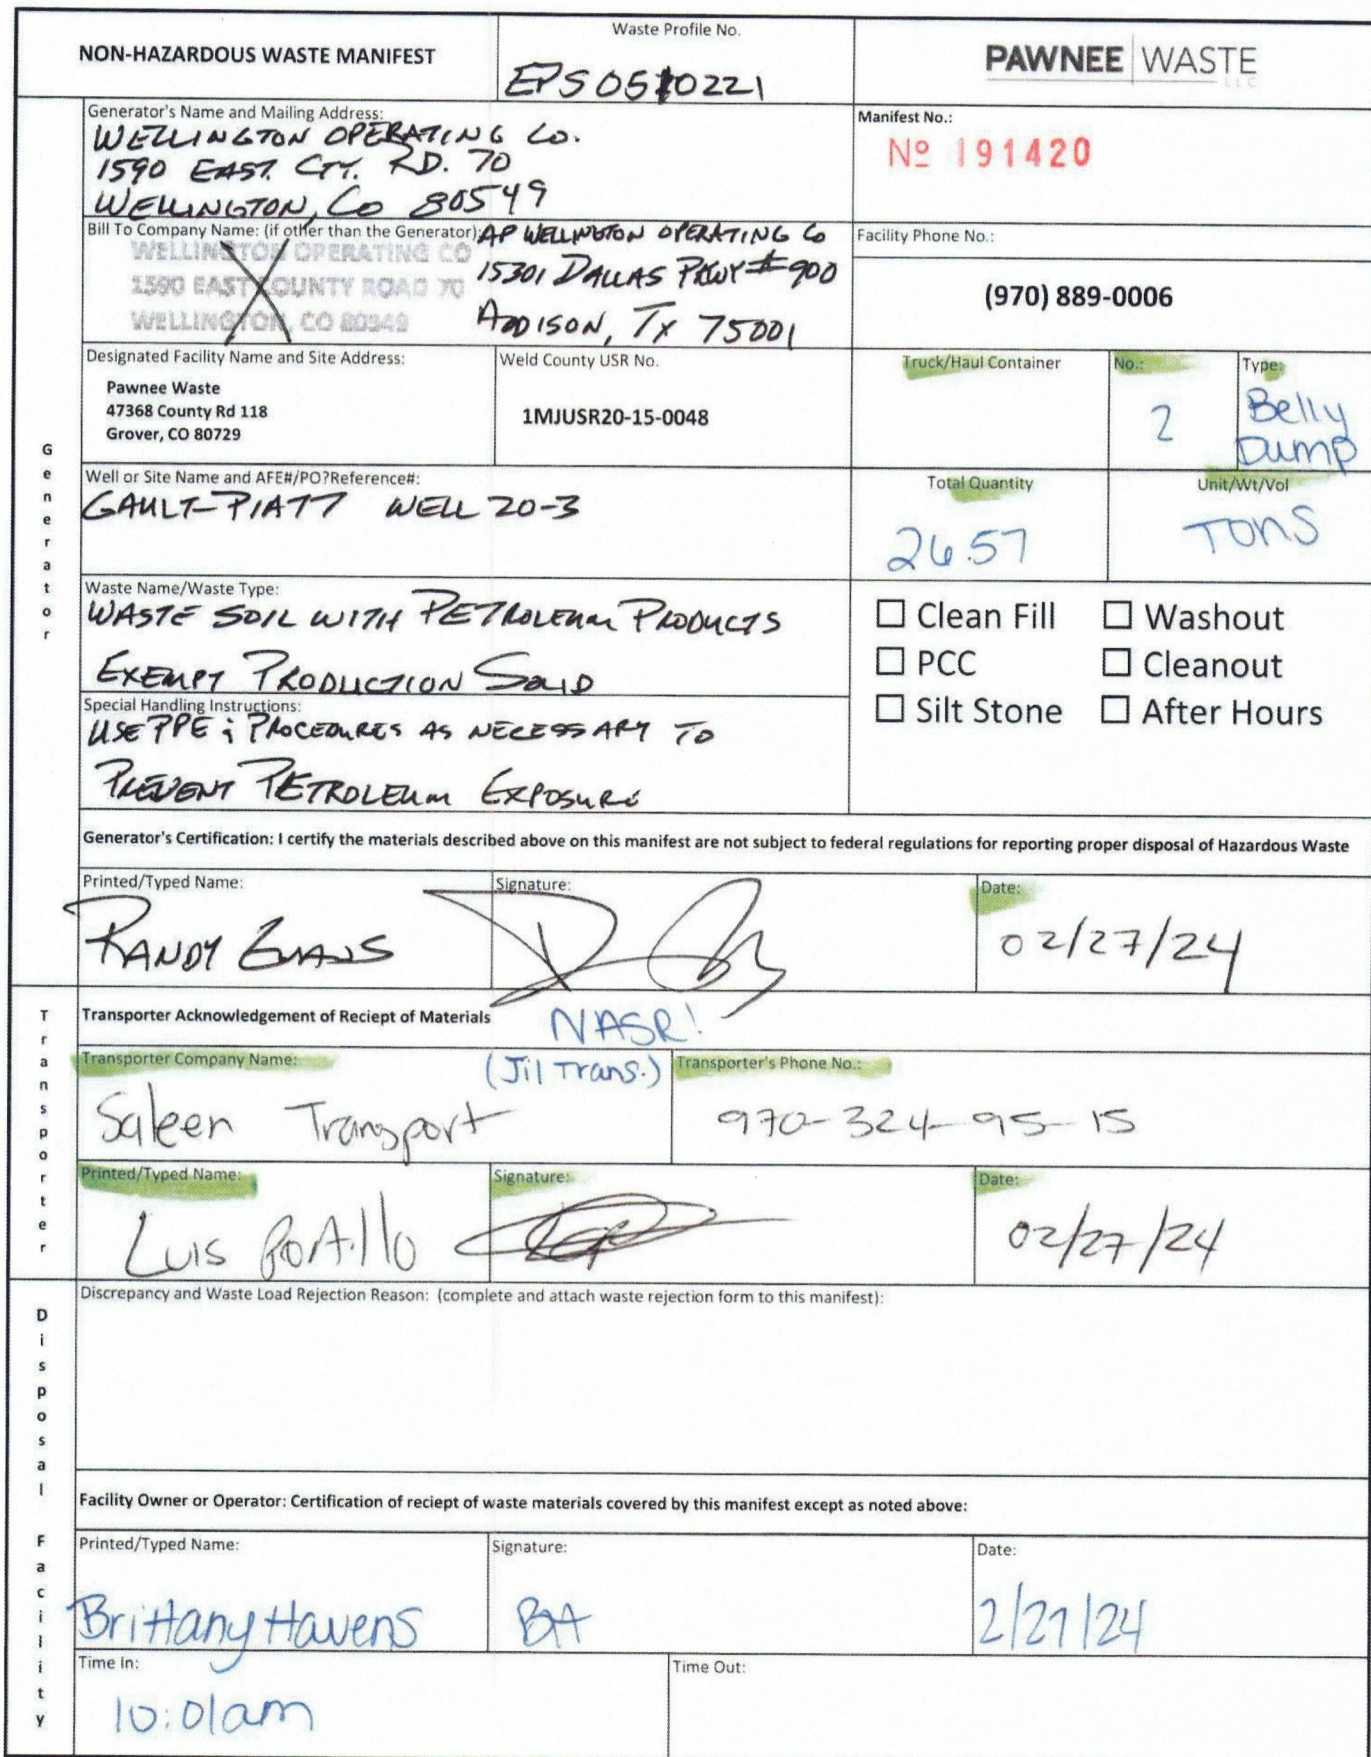 NON-HAZARDOUS WASTE MANIFEST
Waste Profile No.
EPS0510221
PAWNEE WASTE
LLC
Generator's Name and Mailing Address:
WELLINGTON OPERATING CO.
1590 EAST CTY. RD. 70
WELLINGTON, CO 80549
Manifest No.:
Nº 191420
Bill To Company Name: (if other than the Generator):
WELLINGTON OPERATING CO
1590 EAST COUNTY ROAD 70
WELLINGTON, CO 80549
AP WELLINGTON OPERATING CO
15301 DALLAS PKWY #900
ADDISON, TX 75001
Facility Phone No.:
(970) 889-0006
Designated Facility Name and Site Address:
Pawnee Waste
47368 County Rd 118
Grover, CO 80729
Weld County USR No.
1MJUSR20-15-0048
Truck/Haul Container
No.:
2
Type:
Belly
Dump
Generator
Well or Site Name and AFE#/PO?Reference#:
GAULT-PIATT WELL 20-3
Total Quantity
26.57
Unit/Wt/Vol
TONS
Waste Name/Waste Type:
WASTE SOIL WITH PETROLEUM PRODUCTS
EXEMPT PRODUCTION SOLID
☐ Clean Fill ☐ Washout
☐ PCC ☐ Cleanout
☐ Silt Stone ☐ After Hours
Special Handling Instructions:
USE PPE & PROCEDURES AS NECESSARY TO
PREVENT PETROLEUM EXPOSURE
Generator's Certification: I certify the materials described above on this manifest are not subject to federal regulations for reporting proper disposal of Hazardous Waste
Printed/Typed Name:
RANDY EVANS
Signature:
Date:
02/27/24
Transporter
Transporter Acknowledgement of Reciept of Materials
NASR!
(Jil Trans.)
Transporter Company Name:
Saleen Transport
Transporter's Phone No.:
970-324-95-15
Printed/Typed Name:
Luis Portillo
Signature:
Date:
02/27/24
Disposal Facility
Discrepancy and Waste Load Rejection Reason: (complete and attach waste rejection form to this manifest):
Facility Owner or Operator: Certification of reciept of waste materials covered by this manifest except as noted above:
Printed/Typed Name:
Brittany Havens
Signature:
BH
Date:
2/27/24
Time In:
10:01am
Time Out: